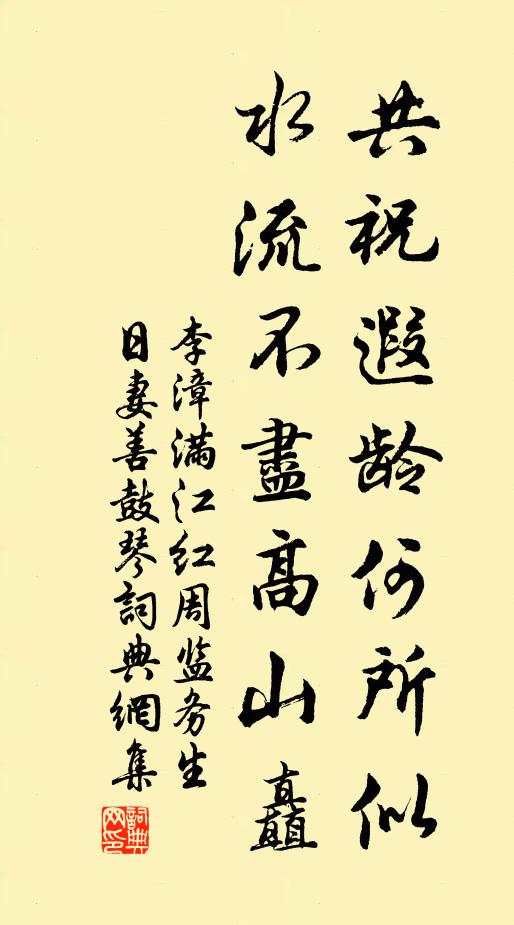 共祝遐龄何所似
水流不盡高山矗
李漳满江红周监务生
日妻善鼓琴詞典網集
詞典
网印